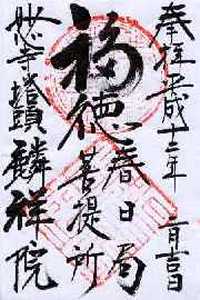 奉拝 平成十二年 一月吉日
福徳
春日局
菩提所
妙心寺塔頭 麟祥院